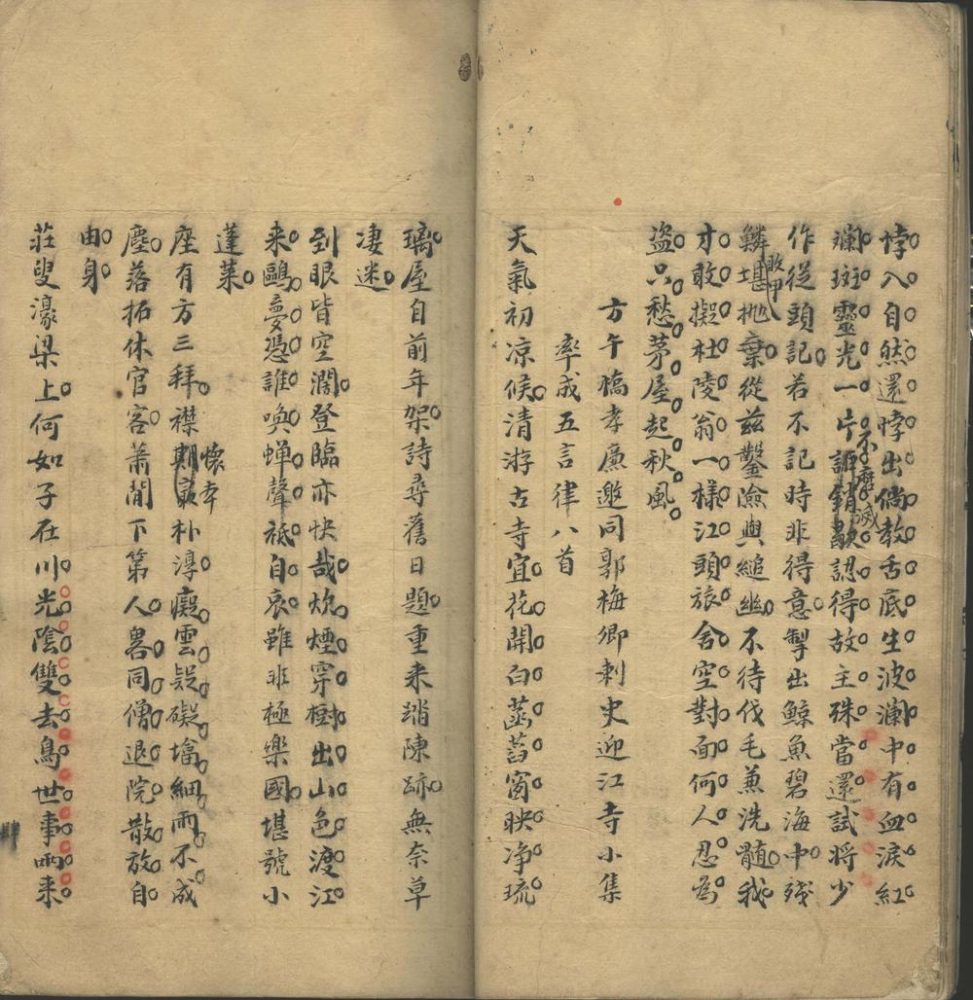 悖入自然還悖出偶教舌底生波瀾中有血淚紅
斕斑靈光一片不磨滅認得故主珠當還試將少
作從頭記若不記時非得意掣出鯨魚碧海中殘
鱗敗甲堪抛棄從茲鑿險與縋幽不待伐毛兼洗髓我
才敢擬杜陵翁一樣江頭旅舍空對面何人忍為
盜只愁茅屋起秋風
方午橋孝廉邀同郭梅卿刺史迎江寺小集
率成五言律八首
天氣初凉候清游古寺宜花開白菡萏窗映净琉
璃屋自前年架詩尋舊日題重来踏陳跡無奈草
凄迷
到眼皆空濶登臨亦快哉炊煙穿樹出山色渡江
来鷗夢憑誰喚蟬聲祗自哀雖非極樂國堪號小
蓬萊
座有方三拜襟懷朴淳癡雲疑礙墖細雨不成
塵落拓休官客萧閒下第人畧同僧退院散放自
由身
莊叟濠梁上何如子在川光陰雙去鳥世事兩来